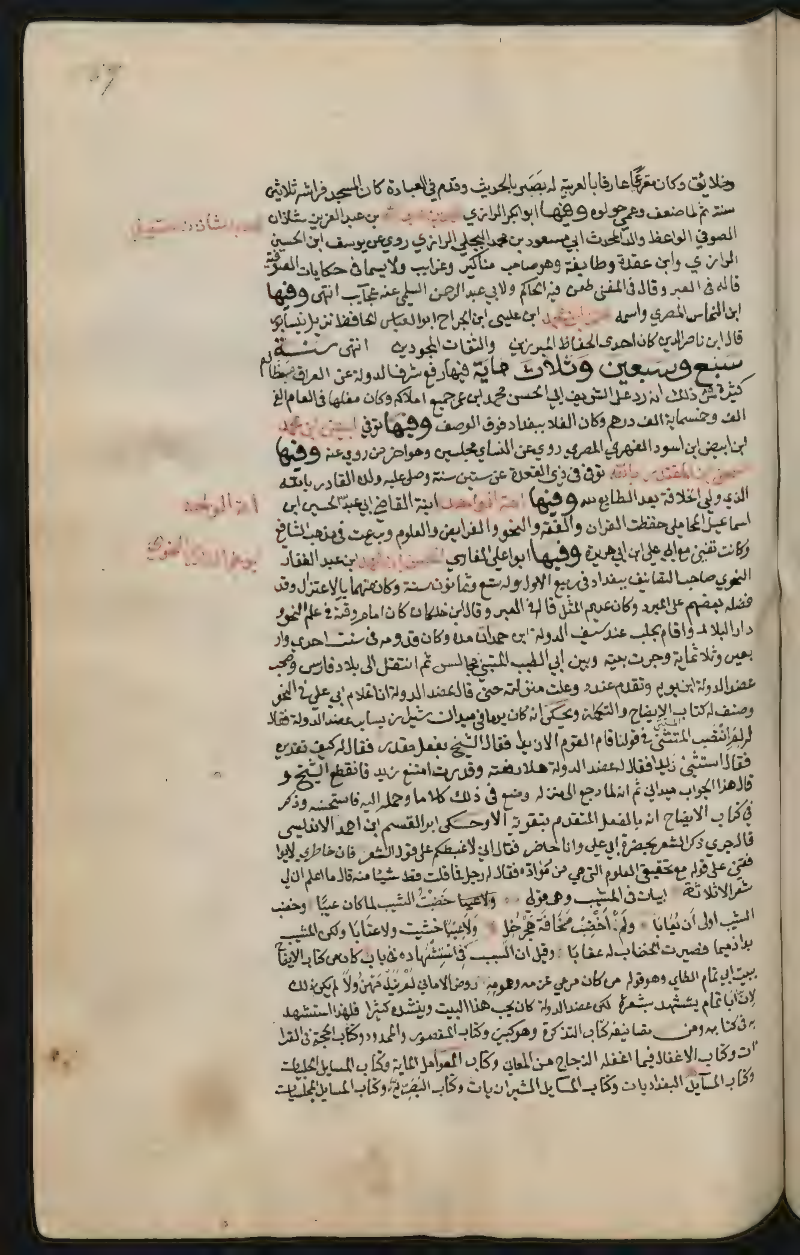 وخلائق وكان مقرئا عارفا بالعربية له بصر بالحديث وقدم في العبادة كان المسجد فراشه ثلاثين
سنة ثم لما ضعف وعمي حولوه وفيها ابو بكر الرازي بن عبد العزيز بن شاذان
الصوفي الواعظ والد المحدث ابي مسعود بن محمد البجلي الرازي روي عن يوسف ابن الحسين
الرازي وابن عقدة وطايفة وهو صاحب مناكير وغرايب ولا سيما في حكايات الصوفية
قاله في العبر وقال في المغني طعن فيه الحاكم ولابي عبد الرحمن السلمي عنه عجايب انتهى وفيها
ابن النحاس المصري واسمه ابن عليسي ابن الجراح ابو العباس الحافظ نزيل نيسابور
قال ابن ناصر الدين كان احدى الحفاظ المبرزين والثقات المجودين انتهى سنة
سبع وسبعين وثلاث ماية فيها رفع شرف الدولة عن العراق مظالم
كثيرة فمن ذلك انه رد على الشريف ابي الحسن محمد ابن عمر جميع املاكه وكان مغلها في العام الفي
الف وخمسماية الف درهم وكان الغلا ببغداد فوق الوصف وفيها توفي ابيض ابن محمد
ابن ابيض ابن اسود الفهري المصري روي عن النساي مجلسين وهو اخر من روي عنه وفيها
اسحق بن المقتدر بالله توفي في ذي القعدة عن ستين سنة وصلى عليه ولده القادر بالله
الذي ولي الخلافة بعد الطايع لله وفيها امة الواحد ابنة القاضي ابي عبد الله الحسين ابن
امة الواحد
اسماعيل المحاملي حفظت القران والفقه والنحو والفرايض والعلوم وبرعت في مذهب الشافعي
وكانت تفتي مع ابي علي ابن ابي هريرة وفيها ابو علي الفارسي الحسن ابن احمد ابن عبد الغفار
النحوي صاحب التصانيف ببغداد في ربيع الاول وله تسع وثمانون سنة وكان متهما بالاعتزال وقد
فضله بعضهم على المبرد وكان عديم المثل قاله في العبر وقال ابن خلكان كان امام وقته في علم النحو
دار البلاد واقام بحلب عند سيف الدولة ابن حمدان مدة وكان قدومه في سنة احدى وار
بعين وثلاثماية وجرت بينه وبين ابي الطيب المتنبي مجالس ثم انتقل الى بلاد فارس وصحب
عضد الدولة ابن بويه وتقدم عنده وعلت منزلته حتى قال عضد الدولة انا غلام ابي علي في النحو
وصنف له كتاب الايضاح والتكملة ويحكى انه كان يوما في ميدان شيراز يساير عضد الدولة فقال
له لم انتصب المستثنى في قولنا قام القوم الا زيدا فقال الشيخ بفعل مقدر فقال له كيف تقديره
فقال استثنى زيدا فقال له عضد الدولة هلا رفعته وقدرت امتنع زيد فانقطع الشيخ و
قال هذا الجواب ميداني ثم انه لما رجع الى منزله وضع في ذلك كلاما وحمله اليه فاستحسنه وذكر
في كتاب الايضاح انه بالفعل المتقدم بتقوية الا وحكى ابو القسم ابن احمد الاندلسي
قال جري ذكر الشعر بحضرة ابي علي وانا حاضر فقال اني لاغبطكم على قول الشعر فان خاطري لا يوا
فقني على قوله مع تحقيقي العلوم التي هي من مواده فقال له رجل فما قلت قط شيئا منه قال ما اعلم ان لي
شعر الا ثلاثة ابيات في المشيب وهي قولي ولا عيبا خضبت الشيب لما كان عيبا وخضب
الشيب اولى ان يعابا ولم اخضب مخافة هجر خل ولا عيبا خشيت ولا عتابا ولكن المشيب
بدا ذميما فصيرت الخضاب له عقابا وقيل ان السبب في استشهاده في باب كان من كتاب الايضاح
ببيت ابي تمام الطاي وهو قوله من كان مرعي عزمه وهمومه روض الاماني لم يزل مهزولا لم يكن ذلك
لان ابا تمام يستشهد بشعره لكن عضد الدولة كان يحب هذا البيت وينشده كثيرا فلهذا استشهد
به في كتابه ومن تصانيفه كتاب التذكرة وهو كبير وكتاب المقصور والممدود وكتاب الحجة في القرا
ات وكتاب الاغفال فيما اغفله الزجاج من المعاني وكتاب العوامل الماية وكتاب المسايل الحلبيات
وكتاب المسايل البغداديات وكتاب المسايل الشيرازيات وكتاب البصرية وكتاب المسايل المجلسيات